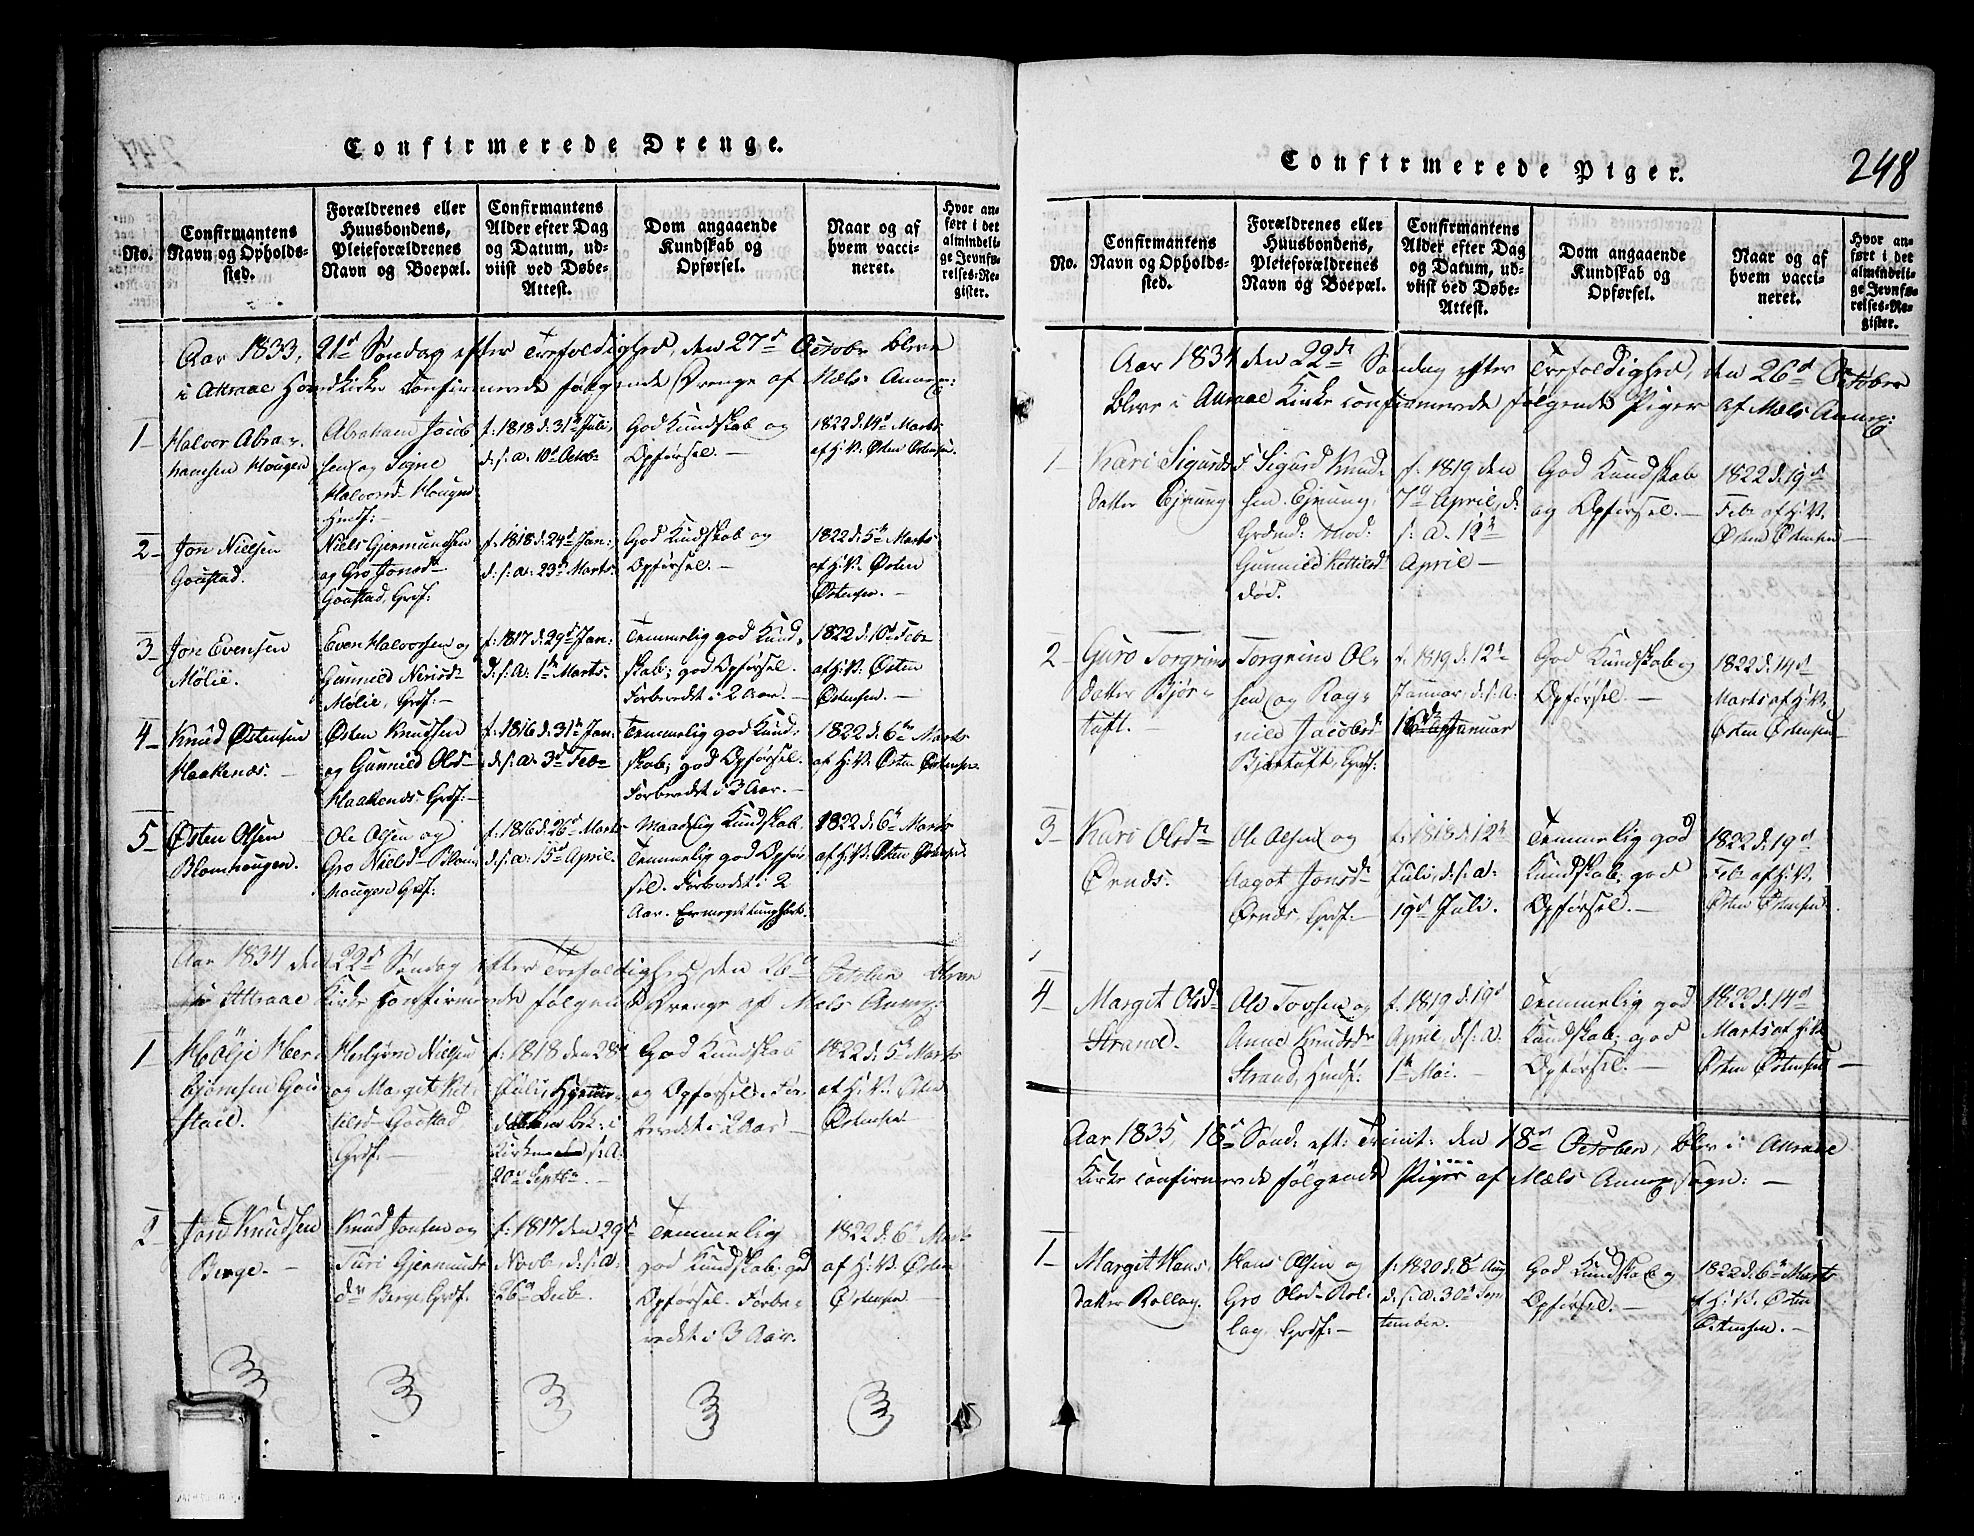 Confirmerede Drenge.
No.
Confirmantens
Navn og Opholds-
sted.
Forældrenes eller
Huusbondens,
Pleieforældrenes
Navn og Boepæl.
Confirmantens
Alder efter Dag
og Datum, ud-
viist ved Døbe-
Attest.
Dom angaaende
Kundskab og
Opførsel.
Naar og af
hvem vacci-
neret.
Hvor an-
ført i det
almindeli-
ge Jevnfø-
relses-Re-
gister.
Aar 1833, 21d Søndag efter Trefoldighed, den 27d Octobr bleve
i Attraae Hovedkirke confirmerede følgende Drenge af Mæls Annex:
1
Halvor Abra-
hamsen Hougen
Abraham Jacob
sen og Signe
Halvorsd Hougen
Hmdf:
f. 1818 d. 31d Juli,
d. s. a. 10d Octob
God Kundskab og
Opførsel. -
1822 d. 14d Marts
af H: V. Østen Østensen.
2
Jon Nielsen
Goustad.
Niels Gjermundsen
og Gro Jonsd
Goustad, Grdf:
f. 1818 d. 24d Jan:
d: s: a: 23d Marts
God Kundskab og
Opførsel. -
1822 d. 5te Marts
af H: V. Østen
Østensen. -
3
Jon Evensen
Mølie.
Even Halvorsen og
Gunnild Nerisd
Mølie, Grdf: -
f. 1817 d. 29d Jan:
d: s: a. 1te Marts.
Temmelig god Kund-
skab; god Opførsel.
Forberedt i 2 Aar. -
1822 d. 10d Feb
af H: V. Østen
Østensen. -
4
Knud Østensen
Haakenæs. -
Østen Knudsen
og Gunnild Olsd
Haakenæs Grdf: -
f. 1816 d. 31te Jan:
d: s: a. 3d Feb
Temmelig god Kund-
skab; god Opførsel.
Forberedt i 3 Aar. -
1822 d. 6te Marts
af H: V. Østen Østensen
5
Østen Olsen
Blomhougen.
Ole Olsen og
Gro Nielsd Blom
hougen Grdf:
f. 1816 d. 26d Marts
d: s: a. 15d April.
Maadelig Kundskab,
Temmelig god Opfør
sel. Forberedt i 2
Aar. Er meget tunghørt.
1822 d. 6te Marts
af H: V. Østen Østensen
Aar 1834 den 22d Søndag efter Trefoldighed, den 26d October bleve
i Attraae Kirke confirmerede følgende Drenge af Mæls Annex:
1
Hølje Her-
bjørnsen Gou
stad.
Herbjørn Nielsen
og Margit Ket-
tilsd Goustad
Grdf: -
f: 1818 den 28d
Juli, Hjemme-
daaben bek: i
Kirken s: A:
20d Septb. -
God Kundskab
og Opførsel. For-
beredt i 2 Aar -
1822 d. 5te Marts
af H: V. Østen
Østensen
2
Jon Knudsen
Berge. -
Knud Jonsen og
Turi Gjermunds
dr Berge Grdf.
f: 1817 den 29d
Novb, d: s: a.
26d Decb.
Temmelig
god Kundskab; god
Opførsel. Forbe-
redt i 3 Aar.
1822 d. 6te Marts
af H: V. Østen
Østensen
248
Confirmerede Piger.
No.
Confirmantens
Navn og Opholds-
sted.
Forældrenes eller
Huusbondens,
Pleieforældrenes
Navn og Boepæl.
Confirmantens
Alder efter Dag
og Datum, ud-
viist ved Døbe-
Attest.
Dom angaaende
Kundskab og
Opførsel.
Naar og af
hvem vacci-
neret.
Hvor an-
ført i det
almindeli-
ge Jevnfø-
relses-Re-
gister.
Aar 1834 den 22de Søndag efter Trefoldighed, den 26d October
bleve i Attraae Kirke confirmerede følgende Piger af Mæls Annex:
1
Kari Sigurds
datter Ejnung
F Sigurd Knud-
sen Ejnung,
Grdmd: Mod:
Gunnild Kettilsd
død.
f. 1819 den
7d April, d:
s: a. 12te
April -
God Kundskab
og Opførsel. -
1822 d. 19d
Feb af H: V.
Østen Østensen -
2
Guro Torgrims
datter Bjør-
tuft. -
Torgrim Ol-
sen og Rag-
nild Jacobsd
Bjørtuft, Grdf:
f. 1819 d. 12te
Januar, d. s: A.
16d Januar
God Kundskab og
Opførsel. -
1822 d. 14d
Marts af H: V.
Østen Østensen -
3
Kari Olsd
Ørnes.
Ole Olsen og
Aagot Jonsd
Ørnes, Grdf: -
f. 1818 d. 12te
Juli, d. s: a.
19d Juli.
Temmelig god
Kundskab; god
Opførsel. -
1822 d. 19d
Feb af H: V.
Østen Østensen.
4
Margit Olsd
Strand.
Ole Tovsen og
Anne Knudsd
Strand, Hmdf:
f. 1819 d. 19d
April, d. s: a.
1te Mai. -
Temmelig god
Kundskab; god
Opførsel. -
1822 d. 14d
Marts af H: V.
Østen Østensen -
Aar 1835, 18d Sønd: eft: Trinit: den 18d October, blev i Attraae
Kirke confirmerede følgende Piger af Mæls Annex sogn: -
1
Margit Hans
datter Rollag.
Hans Olsen og
Gro Olsd Rol-
lag, Grdf: -
f. 1820 d. 8d Aug
d. s: a. 30d Sep
tember.
God Kundskab og
Opførsel. -
1822 d. 6te Marts
af H: V. Østen
Østensen. -